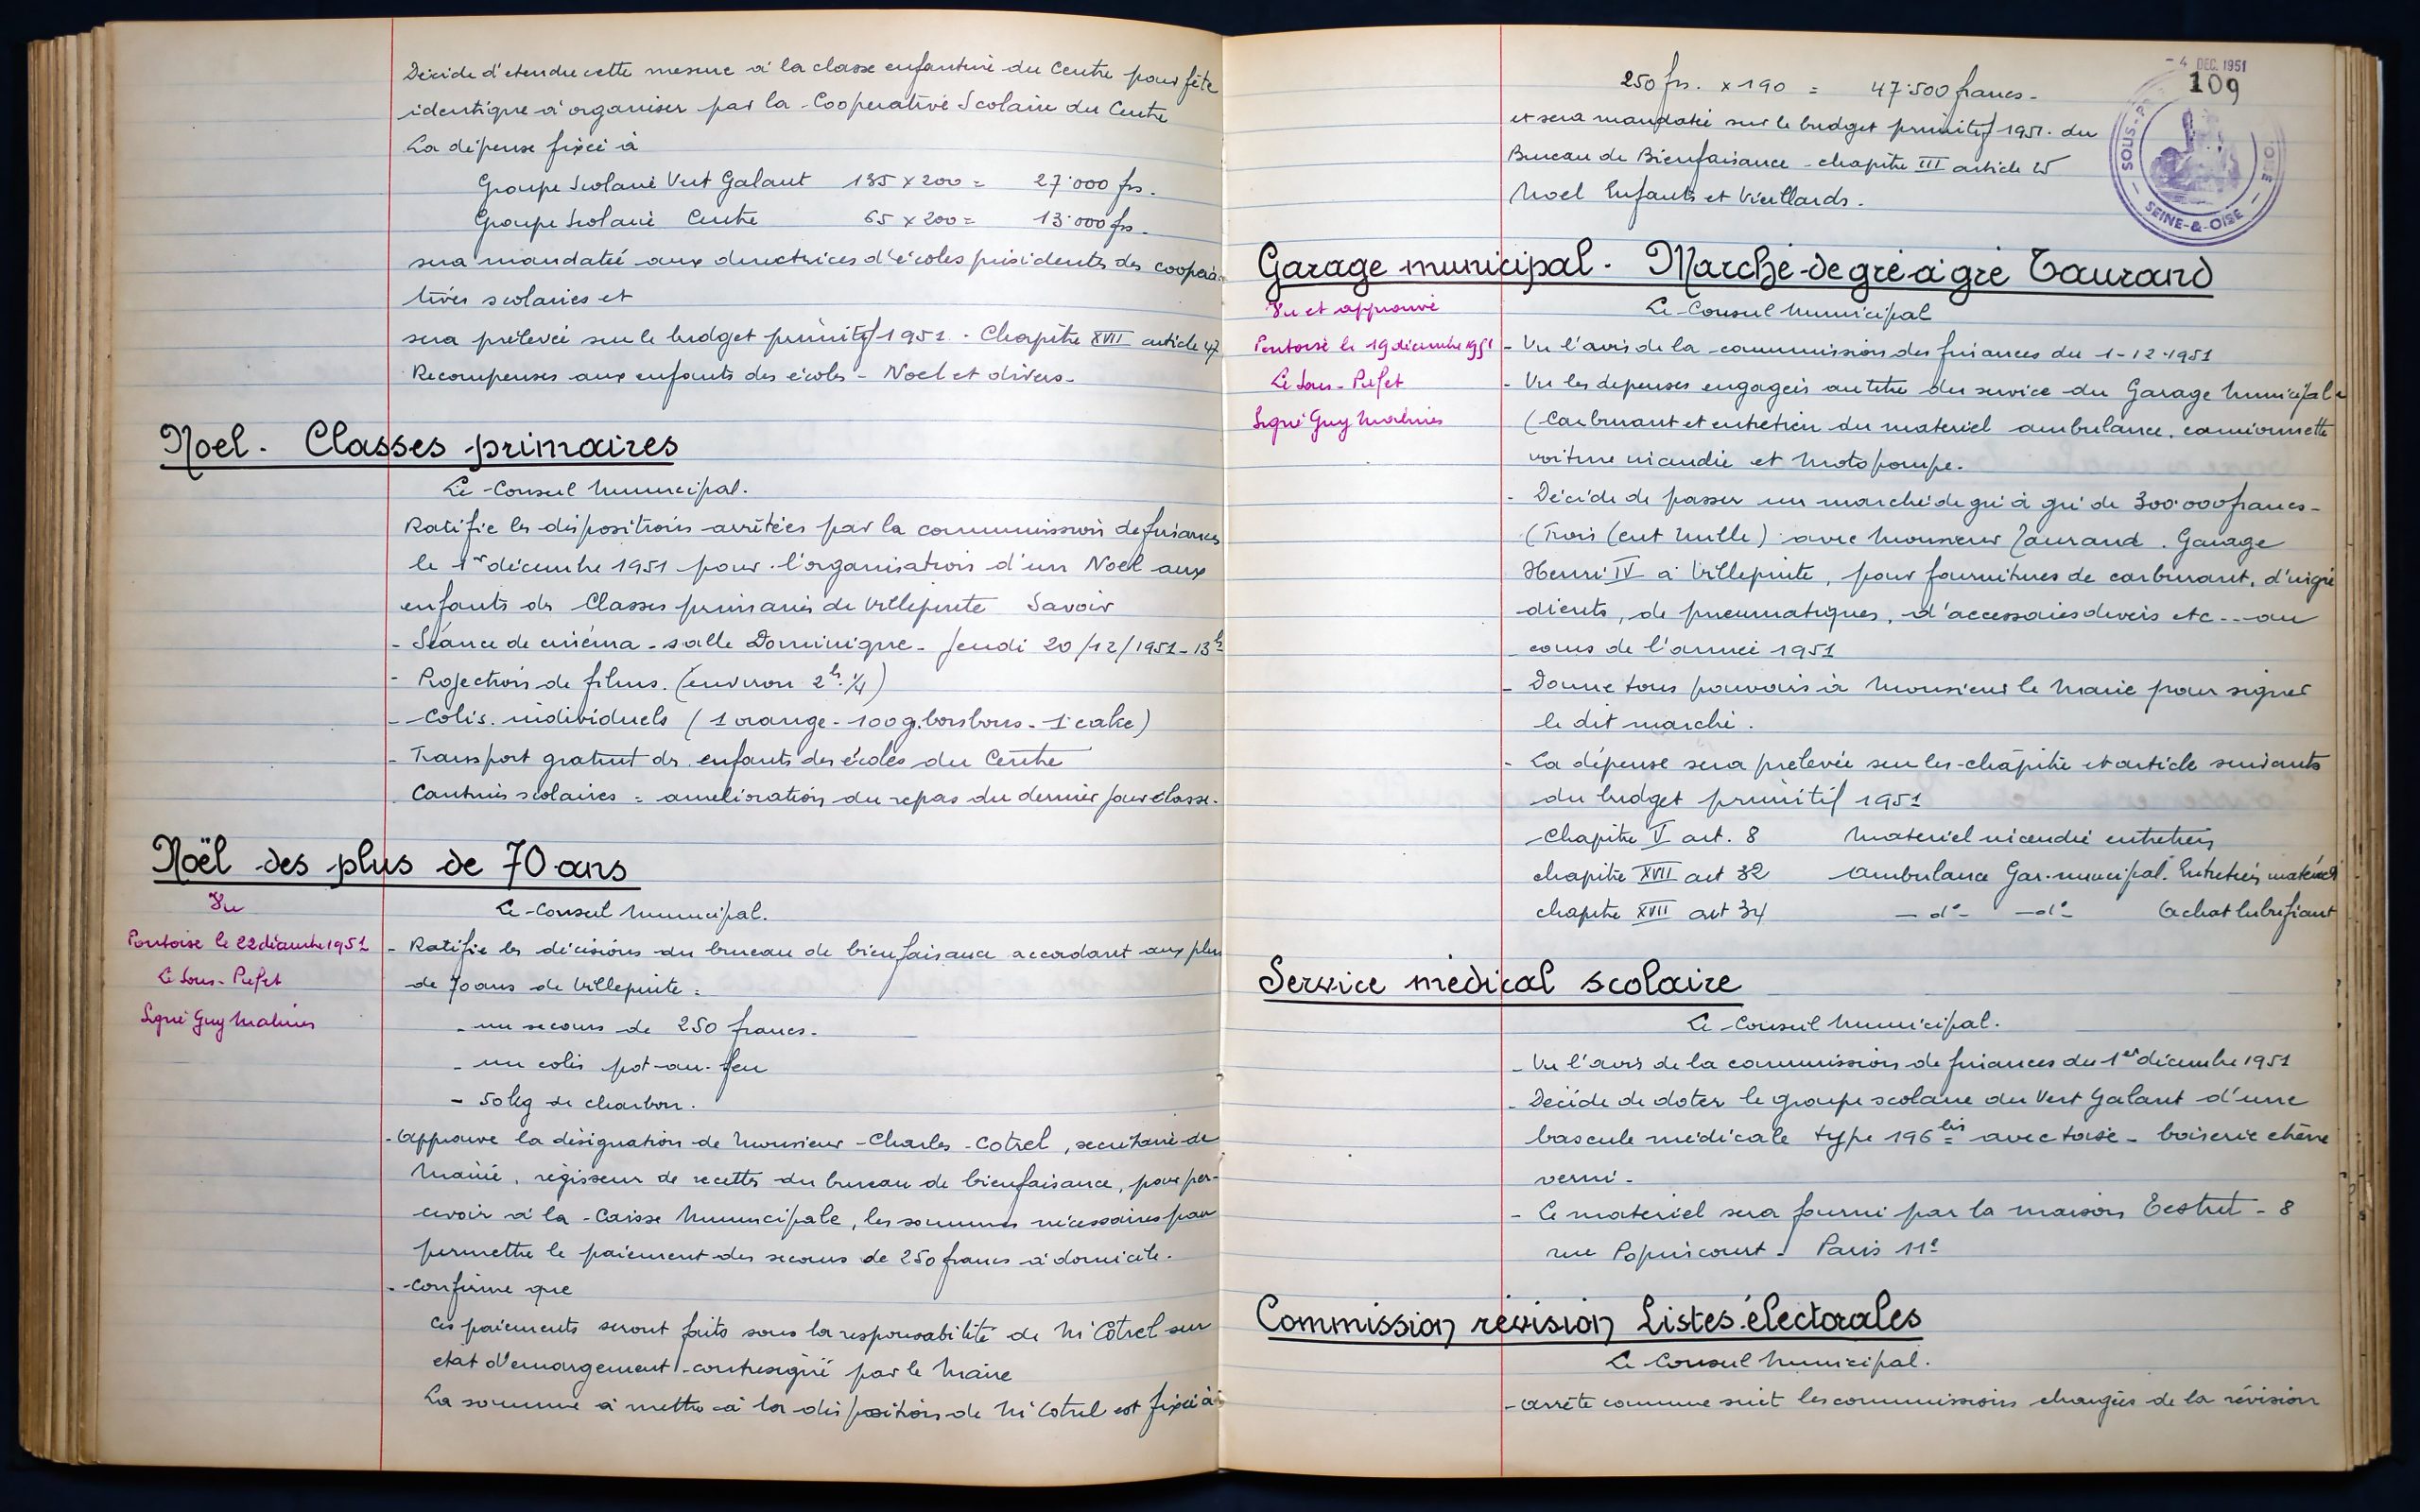 Décide d'étendre cette mesure à la classe enfantine du Centre pour fête
identique à organiser par la Coopérative Scolaire du Centre
La dépense fixée à
Groupe Scolaire Vert Galant 135 x 200 = 27.000 frs.
Groupe Scolaire Centre 65 x 200 = 13.000 frs.
sera mandatée aux directrices d'écoles présidentes des coopéra-
tives scolaires et
sera prélevée sur le budget primitif 1951. Chapitre XVII article 47
Recompenses aux enfants des écoles - Noel et divers.
Noel. Classes primaires
Le Conseil Municipal.
Ratifie les dispositions arrêtées par la commission de finances
le 1er décembre 1951 pour l'organisation d'un Noel aux
enfants des Classes primaires de Villepinte Savoir
- Séance de cinéma - salle Dominique - Jeudi 20/12/1951 - 13h
- Projection de films. (environ 2h. 1/4)
- Colis individuels (1 orange - 100 g. bonbons - 1 cake)
- Transport gratuit des enfants des écoles du Centre
- Cantines scolaires = amélioration du repas du dernier jour classe.
Noël des plus de 70 ans
Vu
Pontoise le 22 décembre 1951
Le Sous-Préfet
Signé Guy Malines
Le Conseil Municipal.
- Ratifie les décisions du bureau de bienfaisance accordant aux plus
de 70 ans de Villepinte :
- un secours de 250 francs.
- un colis pot-au-feu
- 50 kg de charbon.
- Approuve la désignation de Monsieur Charles Cotrel, secrétaire de
Mairie, régisseur de recettes du bureau de bienfaisance, pour per-
cevoir à la Caisse Municipale, les sommes nécessaires pour
permettre le paiement des secours de 250 francs à domicile.
- Confirme que
ces paiements seront faits sous la responsabilité de M. Cotrel sur
etat d'emargement contresigné par le Maire
La somme à mettre à la disposition de M. Cotrel est fixée à
- 4 DEC. 1951
109
SOUS-P
SEINE-&-OISE
250 frs. x 190 = 47.500 francs.
et sera mandatée sur le budget primitif 1951. du
Bureau de Bienfaisance - chapitre III article 25
Noel Enfants et Vieillards.
Garage municipal. Marché de gré à gré Taurand
Vu et approuvé
Pontoise le 19 décembre 1951
Le Sous-Préfet
Signé Guy Malines
Le Conseil Municipal
- Vu l'avis de la commission des finances du 1-12-1951
- Vu les depenses engagées au titre du service du Garage Municipal
(Carburant et entretien du materiel ambulance, camionnette
voiture incendie et Motopompe.
- Décide de passer un marché de gré à gré de 300.000 francs.
(Trois Cent Mille) avec Monsieur Taurand. Garage
Henri IV à Villepinte, pour fournitures de carburant, d'ingré
dients, de pneumatiques, d'accessoires divers etc... au
cours de l'année 1951
- Donne tous pouvoirs à Monsieur le Maire pour signer
le dit marché.
- La dépense sera prélevée sur les chapitre et article suivants
du budget primitif 1951
Chapitre V art. 8 Materiel incendie entretien
chapitre XVII art 32 Ambulance Gar. municipal. Entretien matériel
chapitre XVII art 34 - d° - - d° - Achat lubrifiant
Service médical scolaire
Le Conseil Municipal.
- Vu l'avis de la commission de finances du 1er décembre 1951
- Décide de doter le groupe scolaire du Vert Galant d'une
bascule médicale type 196 bis avec toise - boiserie chêne
verni.
- Le materiel sera fourni par la maison Testut - 8
rue Popincourt - Paris 11e
Commission révision Listes électorales
Le Conseil Municipal.
- arrête comme suit les commissions chargées de la révision